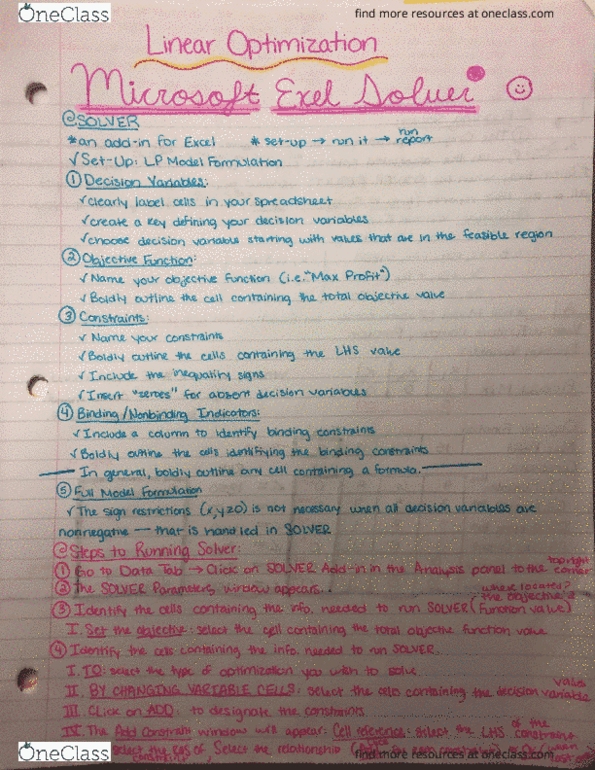 OneClass
find more resources at oneclass.com
Linear Optimization
Microsoft Exel Solver
@SOLVER
*an add-in for Excel * set-up → run it → run report
✓Set-Up: LP Model Formulation
① Decision Variables:
✓clearly label cells in your spreadsheet
✓create a key defining your decision variables
✓choose decision variable starting with values that are in the feasible region
② Objective Function:
✓Name your objective function (i.e. "Max Profit")
✓Boldly outline the cell containing the total objective value
③ Constraints:
✓Name your constraints
✓Boldly outline the cells containing the LHS value
✓Include the inequality signs
✓Insert "zeroes" for absent decision variables
④ Binding/Nonbinding Indicators:
✓Include a column to identify binding constraints
✓Boldly outline the cells identifying the binding constraints
— In general, boldly outline any cell containing a formula. —
⑤ Full Model Formulation
✓The sign restrictions (x,y≥0) is not necessary when all decision variables are
nonnegative — that is handled in SOLVER
@Steps to Running Solver:
① Go to Data Tab → Click on SOLVER Add-in in the Analysis panel to the top right corner
② The SOLVER Parameters window appears..
③ Identify the cells containing the info. needed to run SOLVER (where located? the objective's function value)
I. Set the objective: select the cell containing the total objective function value
④ Identify the cells containing the info. needed to run SOLVER.
I. TO: select the type of optimization you wish to solve
II. BY CHANGING VARIABLE CELLS: select the cells containing the decision variable value
III. Click on ADD: to designate the constraints
IV. The Add Constraint window will appear: Cell reference: select the LHS of the constraint
select the Select the relationship
OneClass
find more resources at oneclass.com